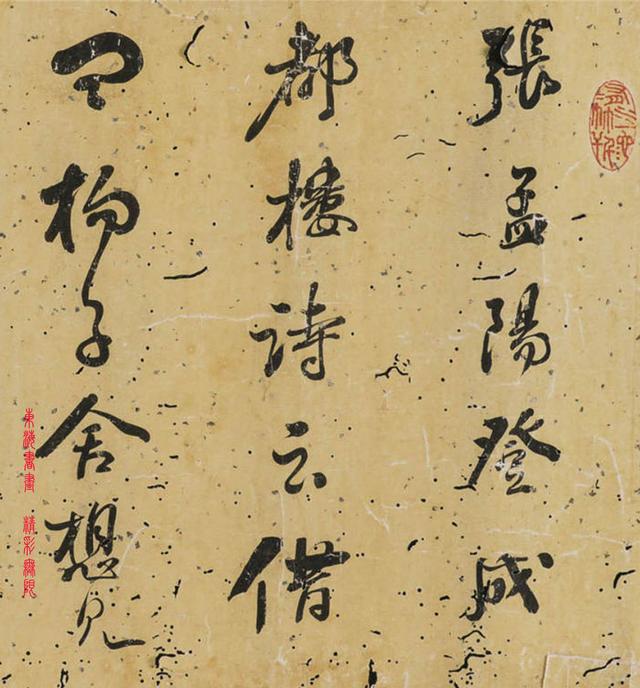 張孟陽登成
都樓詩云借
問楊子舍想見
東海書畫 精彩無限